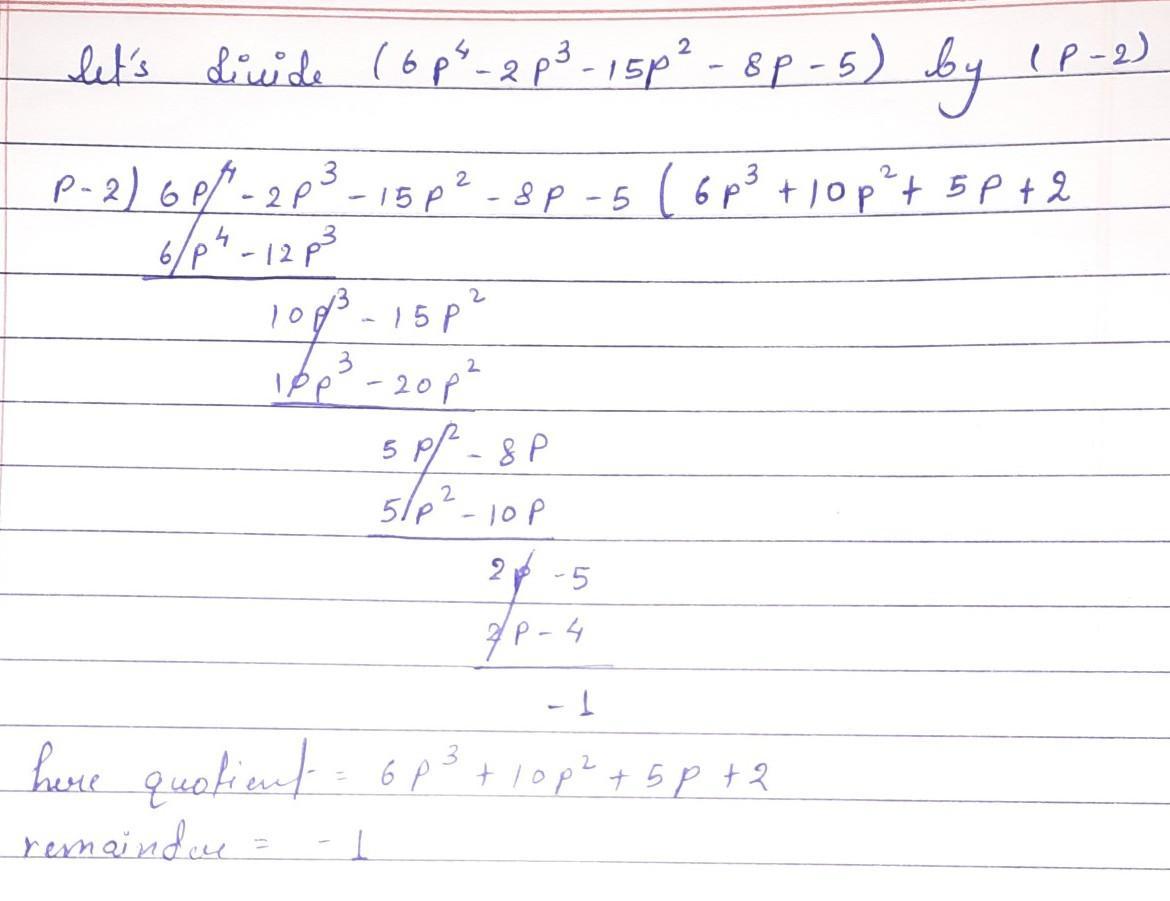 let's divide (6p⁴ - 2p³ - 15p² - 8p - 5) by (p-2)
p-2) 6p⁴ - 2p³ - 15p² - 8p - 5 ( 6p³ + 10p² + 5p + 2
6p⁴ - 12p³
10p³ - 15p²
10p³ - 20p²
5p² - 8p
5p² - 10p
2p - 5
2p - 4
- 1
here quotient = 6p³ + 10p² + 5p + 2
remainder = - 1